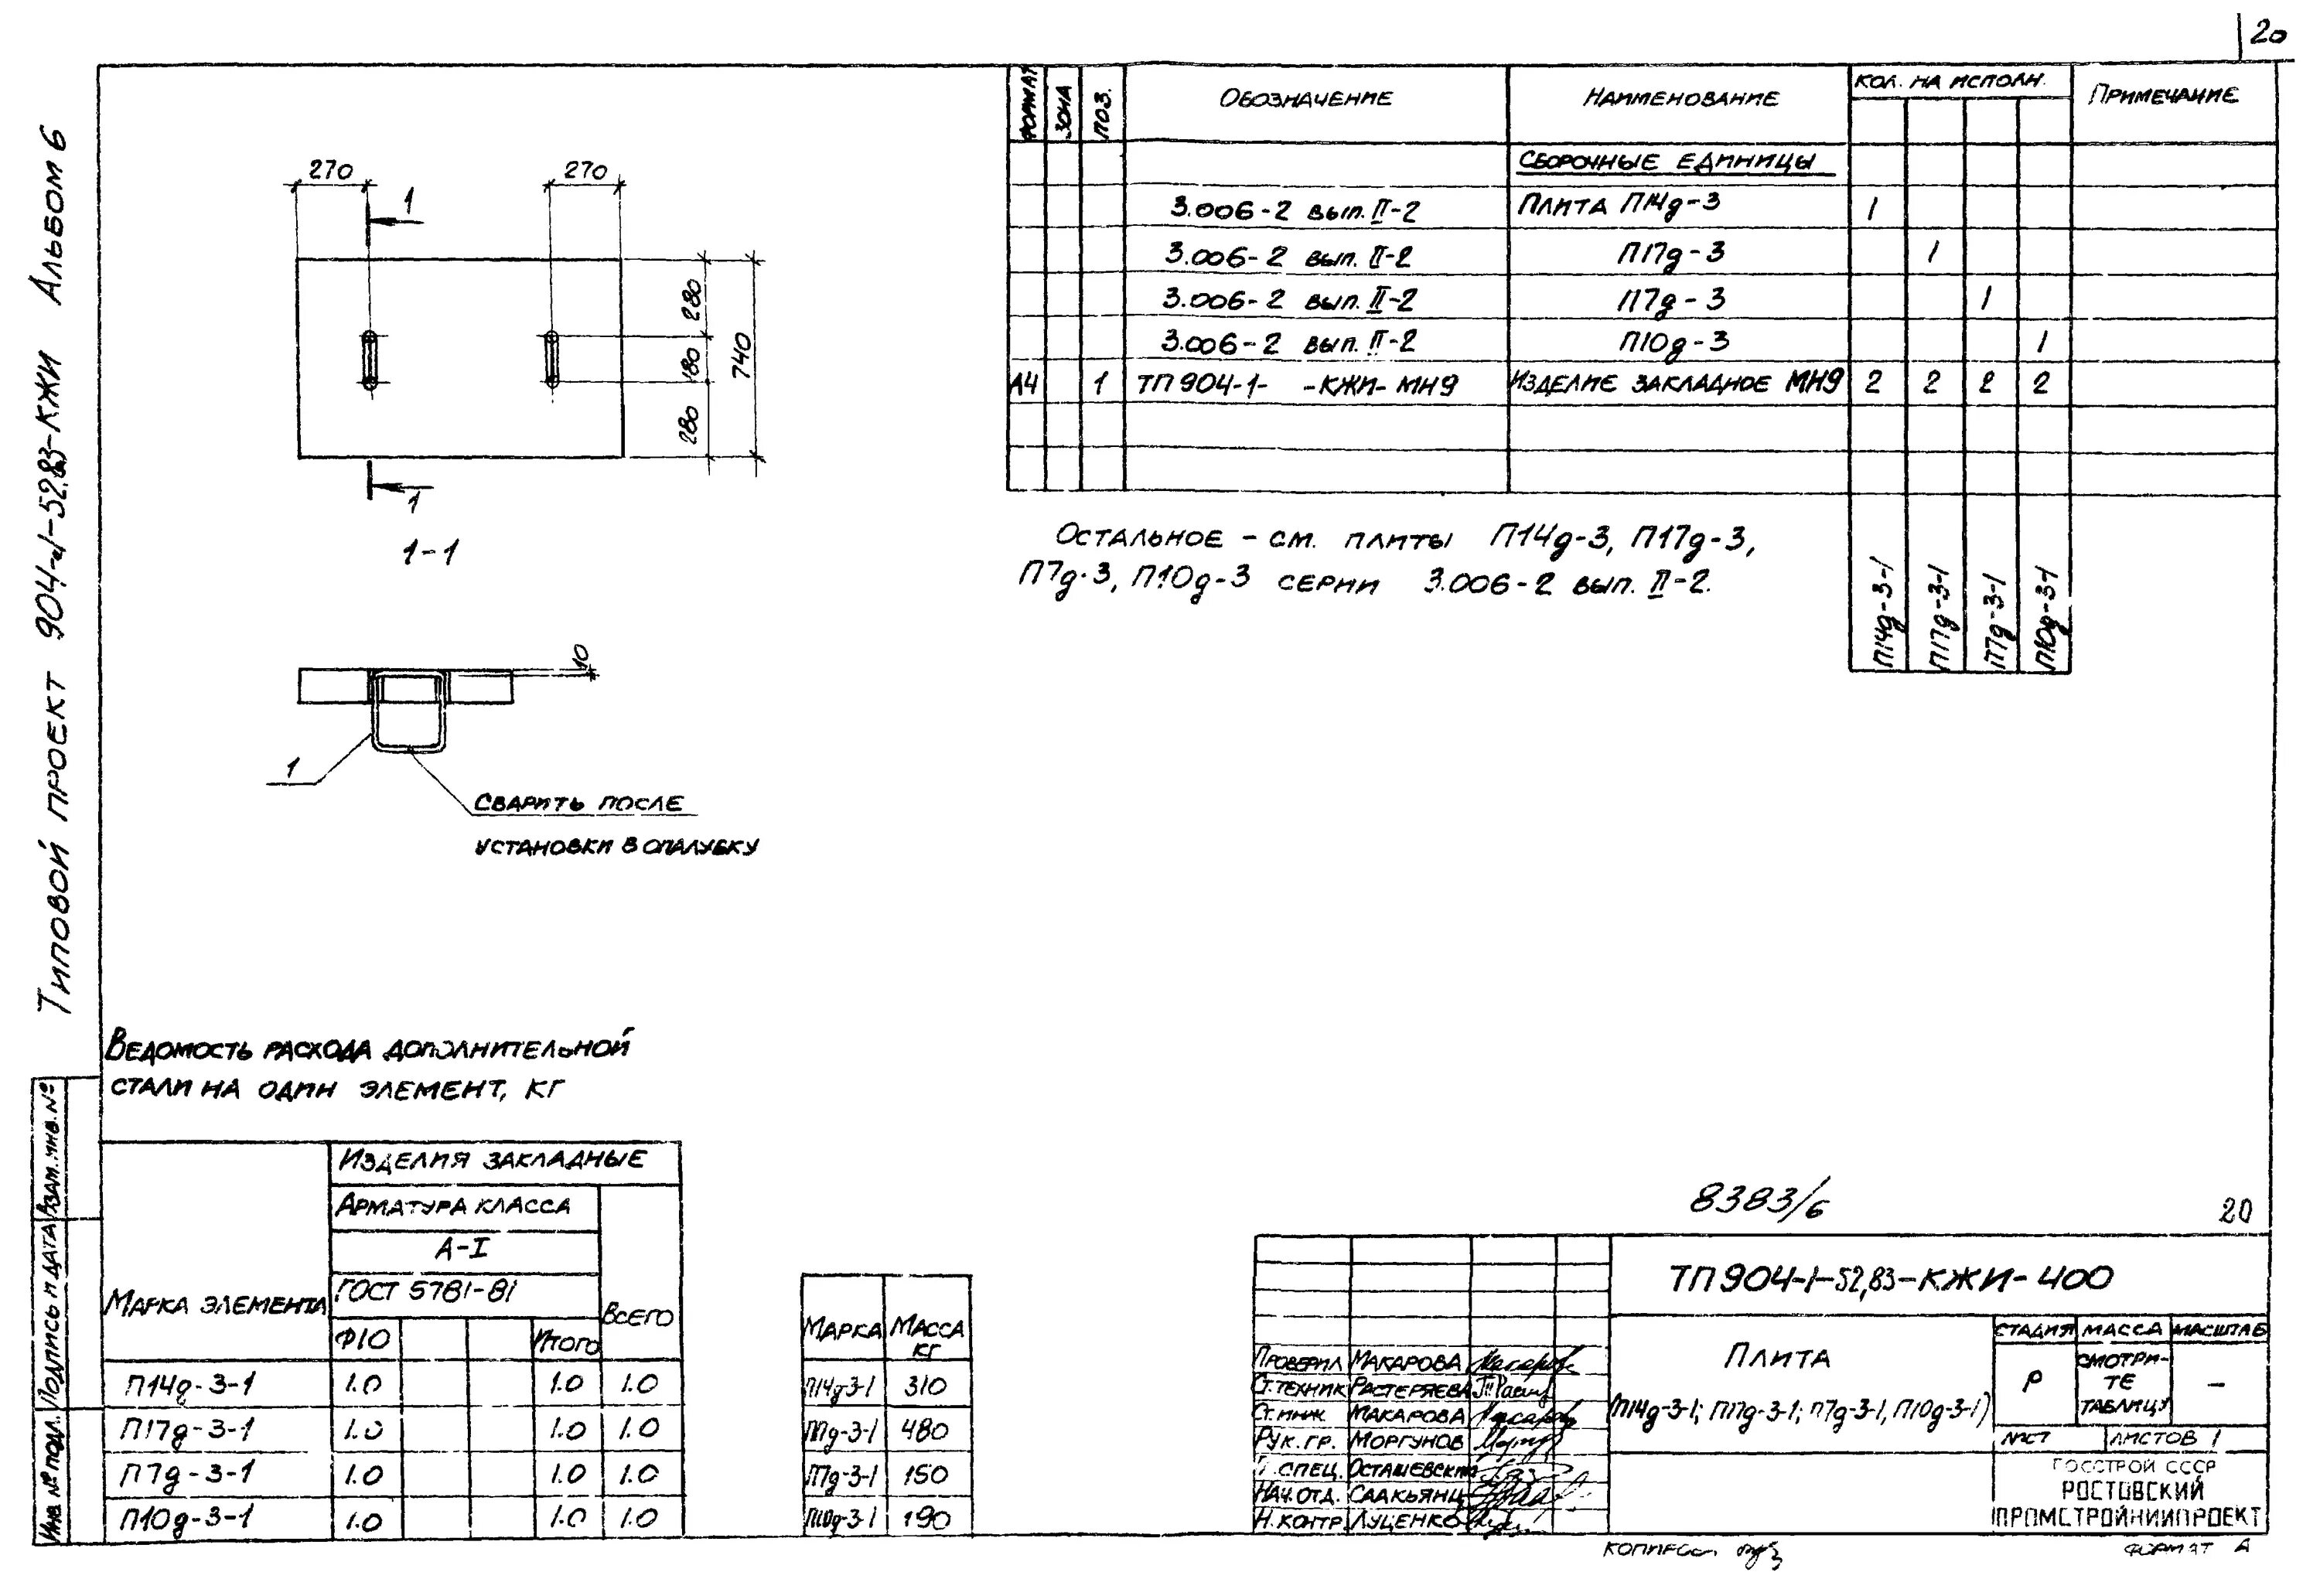 20
Типовой проект 904-1-52.83-КЖИ Альбом 6
270
270
1
1
280
180
280
740
1-1
10
1
Сварить после
установки в опалубку
Формат
Зона
Поз.
Обозначение
Наименование
Кол. на исполн.
Примечание
Сборочные единицы
3.006-2 вып. II-2 Плита П14д-3 1
3.006-2 вып. II-2 П17д-3 1
3.006-2 вып. II-2 П7д-3 1
3.006-2 вып. II-2 П10д-3 1
А4 1 ТП 904-1- -КЖИ-МН9 Изделие закладное МН9 2 2 2 2
П14д-3-1
П17д-3-1
П7д-3-1
П10д-3-1
Остальное - см. плиты П14д-3, П17д-3,
П7д-3, П10д-3 серии 3.006-2 вып. II-2.
Ведомость расхода дополнительной
стали на один элемент, кг
Марка элемента
Изделия закладные
Арматура класса
А-I
ГОСТ 5781-81
Всего
Ф10 Итого
П14д-3-1 1.0 1.0 1.0
П17д-3-1 1.0 1.0 1.0
П7д-3-1 1.0 1.0 1.0
П10д-3-1 1.0 1.0 1.0
Марка Масса
кг
П14д-3-1 310
П17д-3-1 480
П7д-3-1 150
П10д-3-1 190
Взам. инв. №
Подпись и дата
Инв. № подл.
8383/6
20
ТП 904-1-52,83-КЖИ-400
Плита
(П14д-3-1; П17д-3-1; П7д-3-1, П10д-3-1)
Стадия Масса Масштаб
Р
Смотри-
те
таблицу
–
Лист Листов 1
Госстрой СССР
Ростовский
Промстройниипроект
Проверил Макарова
Ст.техник Растеряева
Ст.инж Макарова
Рук.гр. Моргунов
Гл.спец. Осташевский
Нач.отд. Саакьянц
Н.контр Луценко
Формат А